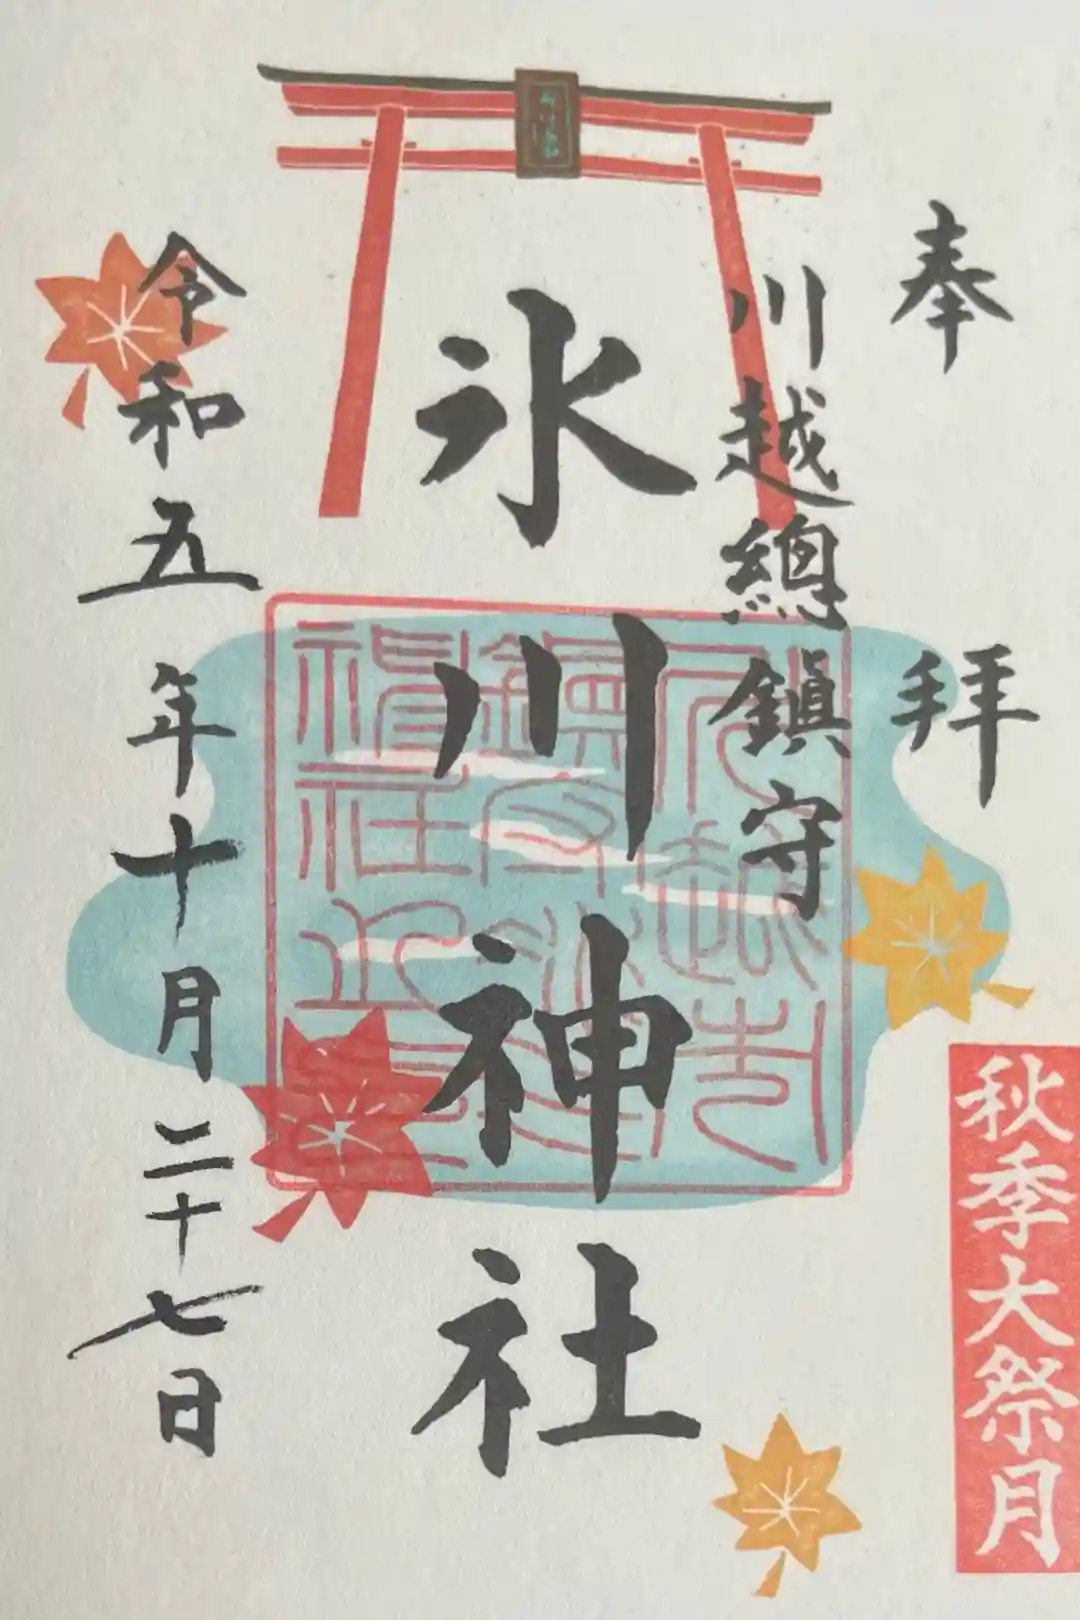 奉拝
川越總鎮守
氷川神社
令和五年十月二十七日
秋季大祭月